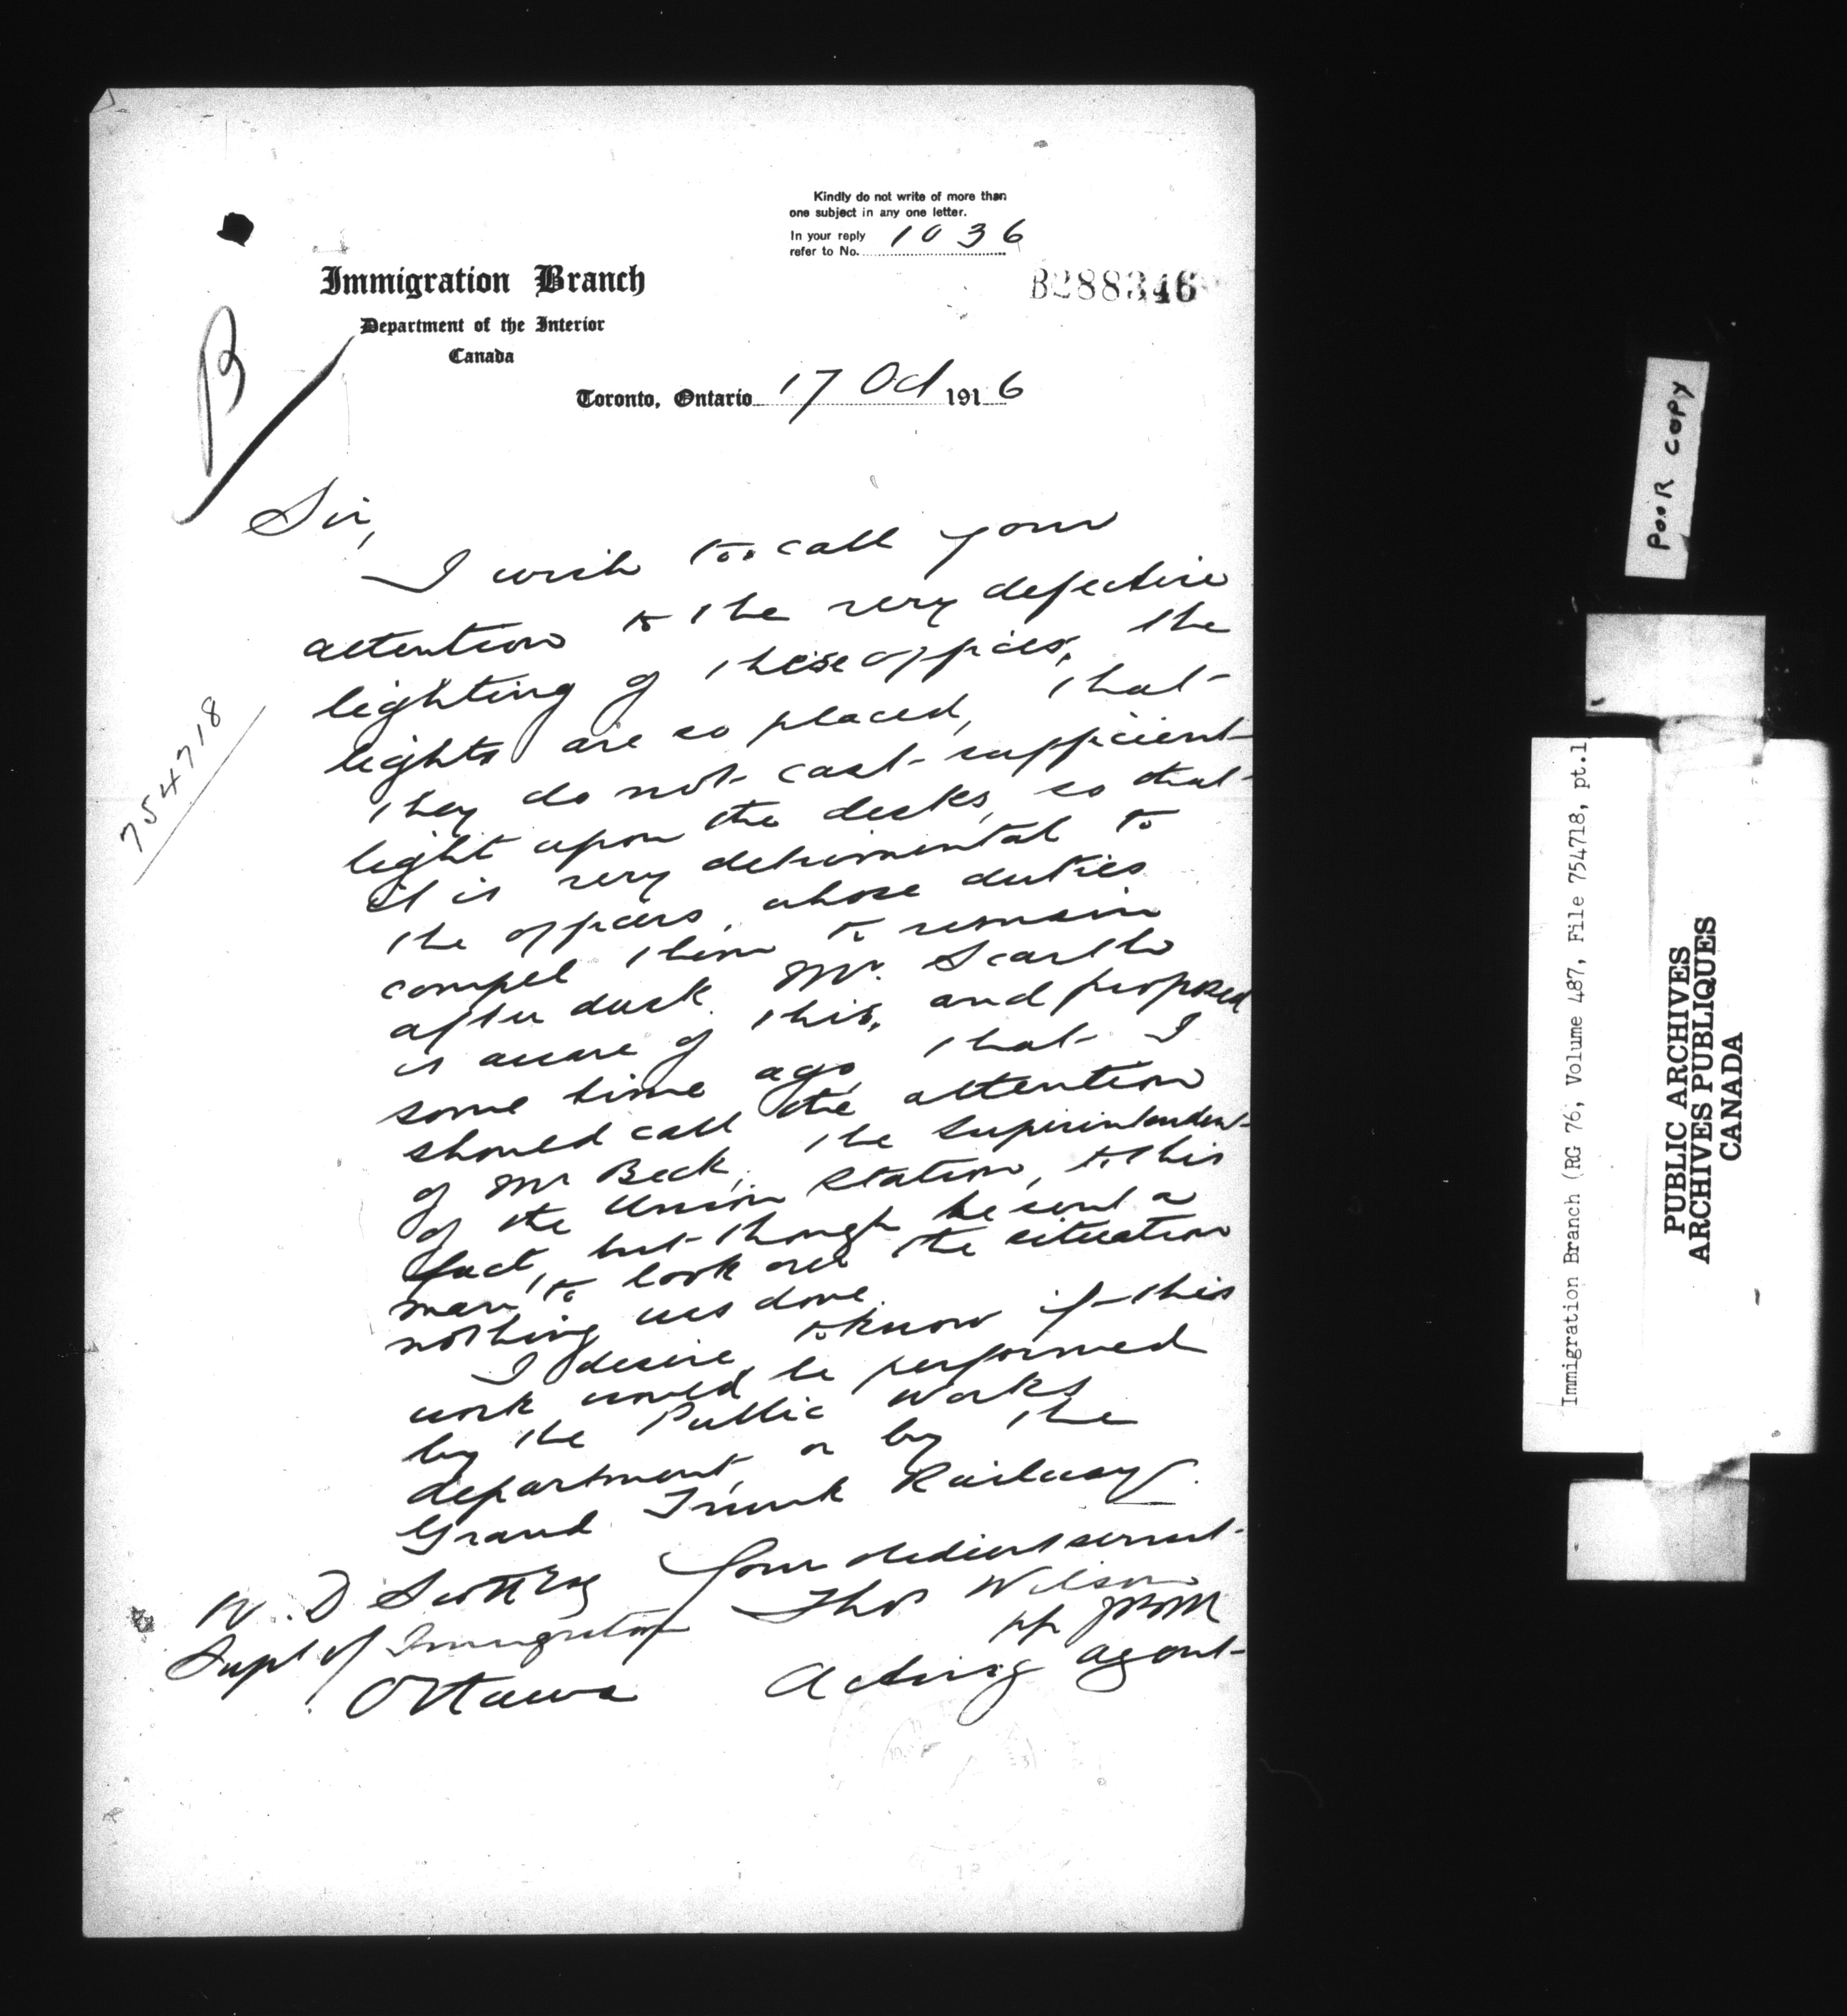 Kindly do not write of more than
one subject in any one letter.
In your reply
refer to No. 1036
B288346
Immigration Branch
Department of the Interior
Canada
B
Toronto, Ontario 17 Oct 1916
754718
Sir,
I wish to call your
attention to the very defective
lighting of these offices, the
lights are so placed, that
they do not cast sufficient
light upon the desks, so that
it is very detrimental to
the officers, whose duties
compel them to remain
after dusk. Mr. Scarth
is aware of this, and proposed
some time ago, that I
should call the attention
of Mr Beck, the Superintendent
of the Union Station, to this
fact, but though he sent a
man, to look over the situation
nothing was done.
I desire to know if this
work would be performed
by the Public Works
department, or by the
Grand Trunk Railway.
Your obedient servant
Thos Wilson
pp
Acting agent
W. D Scott Esq
Supt of Immigration
Ottawa
POOR COPY
Immigration Branch (RG 76, Volume 487, File 754718, pt.1
PUBLIC ARCHIVES
ARCHIVES PUBLIQUES
CANADA